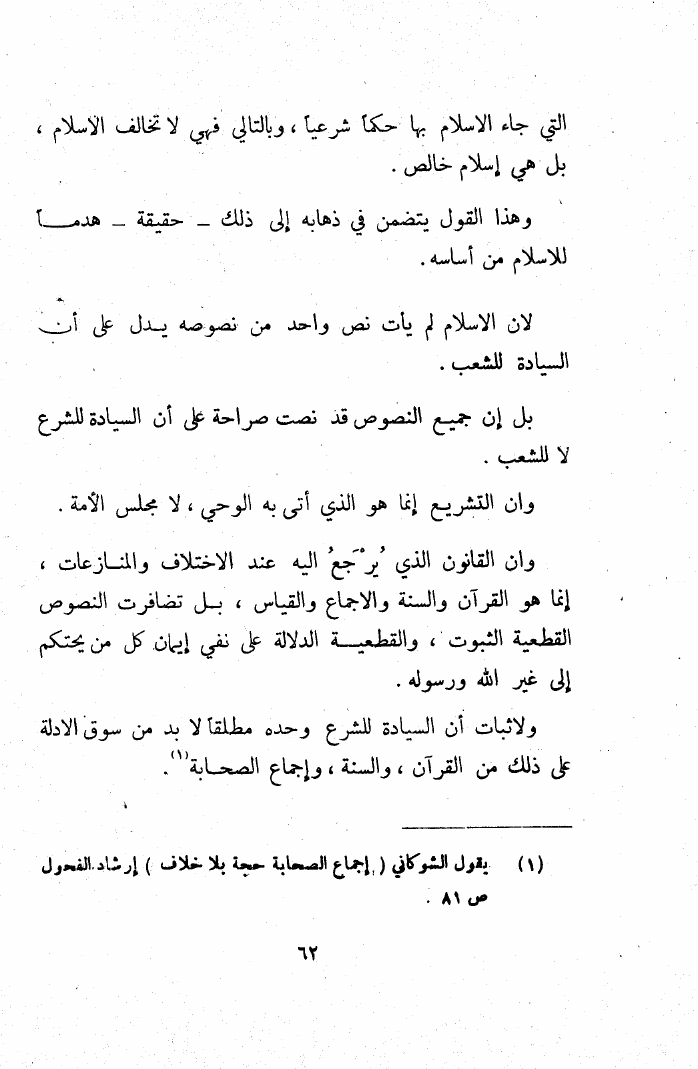 التي جاء الاسلام بها حكماً شرعياً ، وبالتالي فهي لا تخالف الاسلام ،
بل هي إسلام خالص .
وهذا القول يتضمن في ذهابه إلى ذلك – حقيقة – هدمـــاً
للاسلام من أساسه .
لان الاسلام لم يأت نص واحد من نصوصه يــدل على أن
السيادة للشعب .
بل إن جميــع النصوص قد نصت صراحة على أن السيادة للشرع
لا للشعب .
وان التشريــع إنما هو الذي أتى به الوحي ، لا مجلس الأمة .
وان القانون الذي يُرْجَعُ اليه عند الاختلاف والمنــازعات ،
إنما هو القرآن والسنة والاجماع والقياس ، بــل تضافرت النصوص
القطعية الثبوت ، والقطعيـــة الدلالة على نفي إيمان كل من يحتكم
إلى غير الله ورسوله .
ولاثبات أن السيادة للشرع وحده مطلقاً لا بد من سوق الادلة
على ذلك من القرآن ، والسنة ، وإجماع الصحــابة(١) .
(١) يقول الشوكاني ( إجماع الصحابة حجة بلا خلاف ) إرشاد الفحول
ص ٨١ .
٦٢